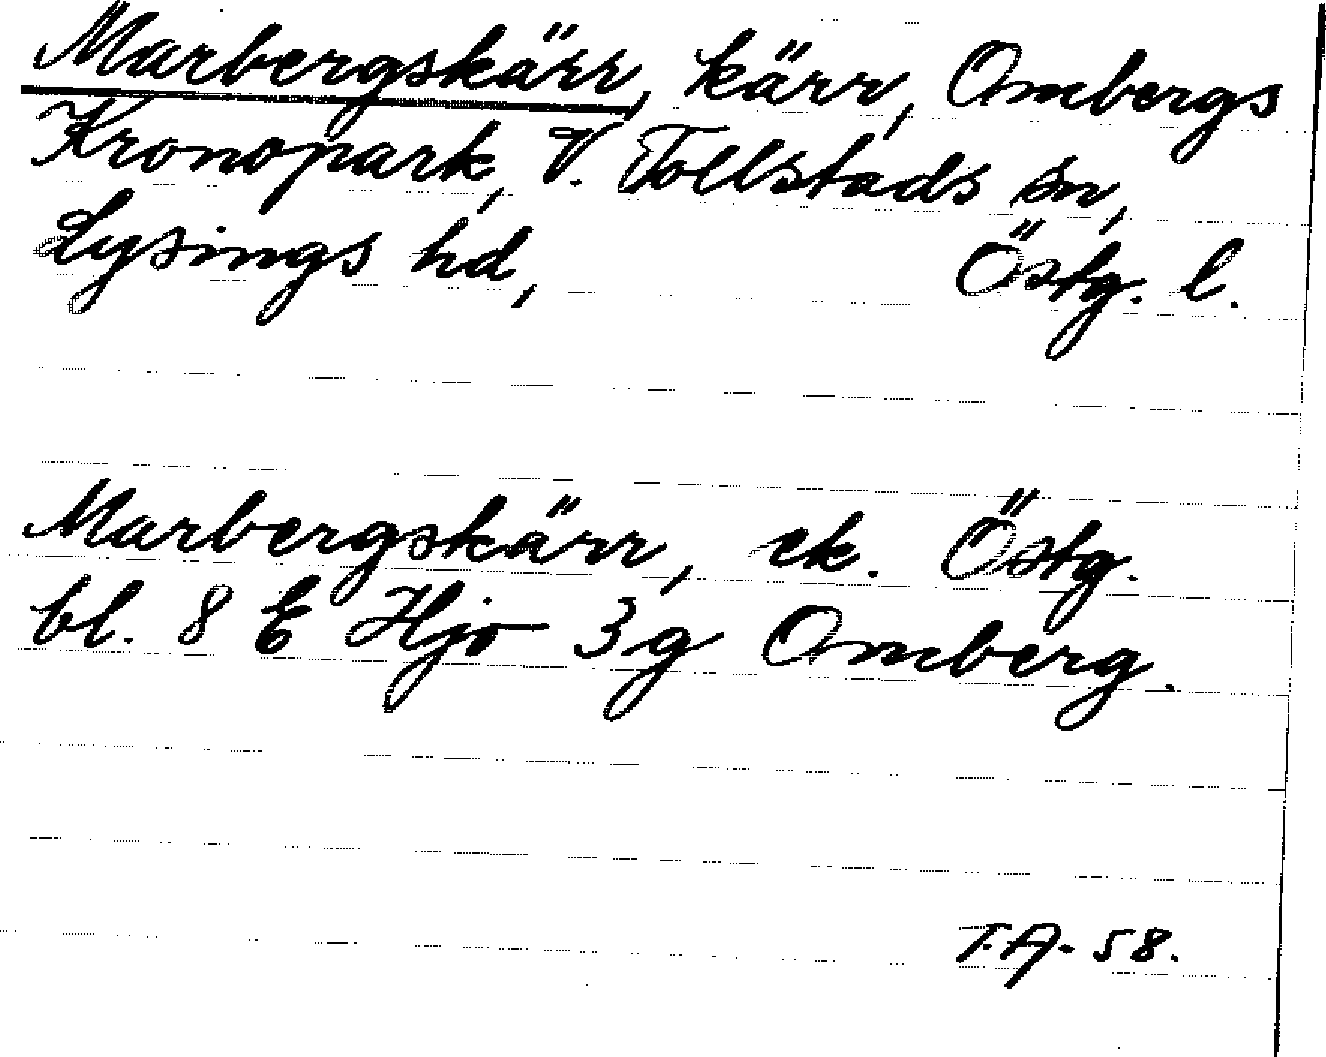 Marbergskärr, kärr, Ombergs
Kronopark, V. Tollstads sn,
Lysings hd, Östg. l.
Marbergskärr, ek. Östg.
bl. 8 E Hjo 3g Omberg.
T.A. 58.